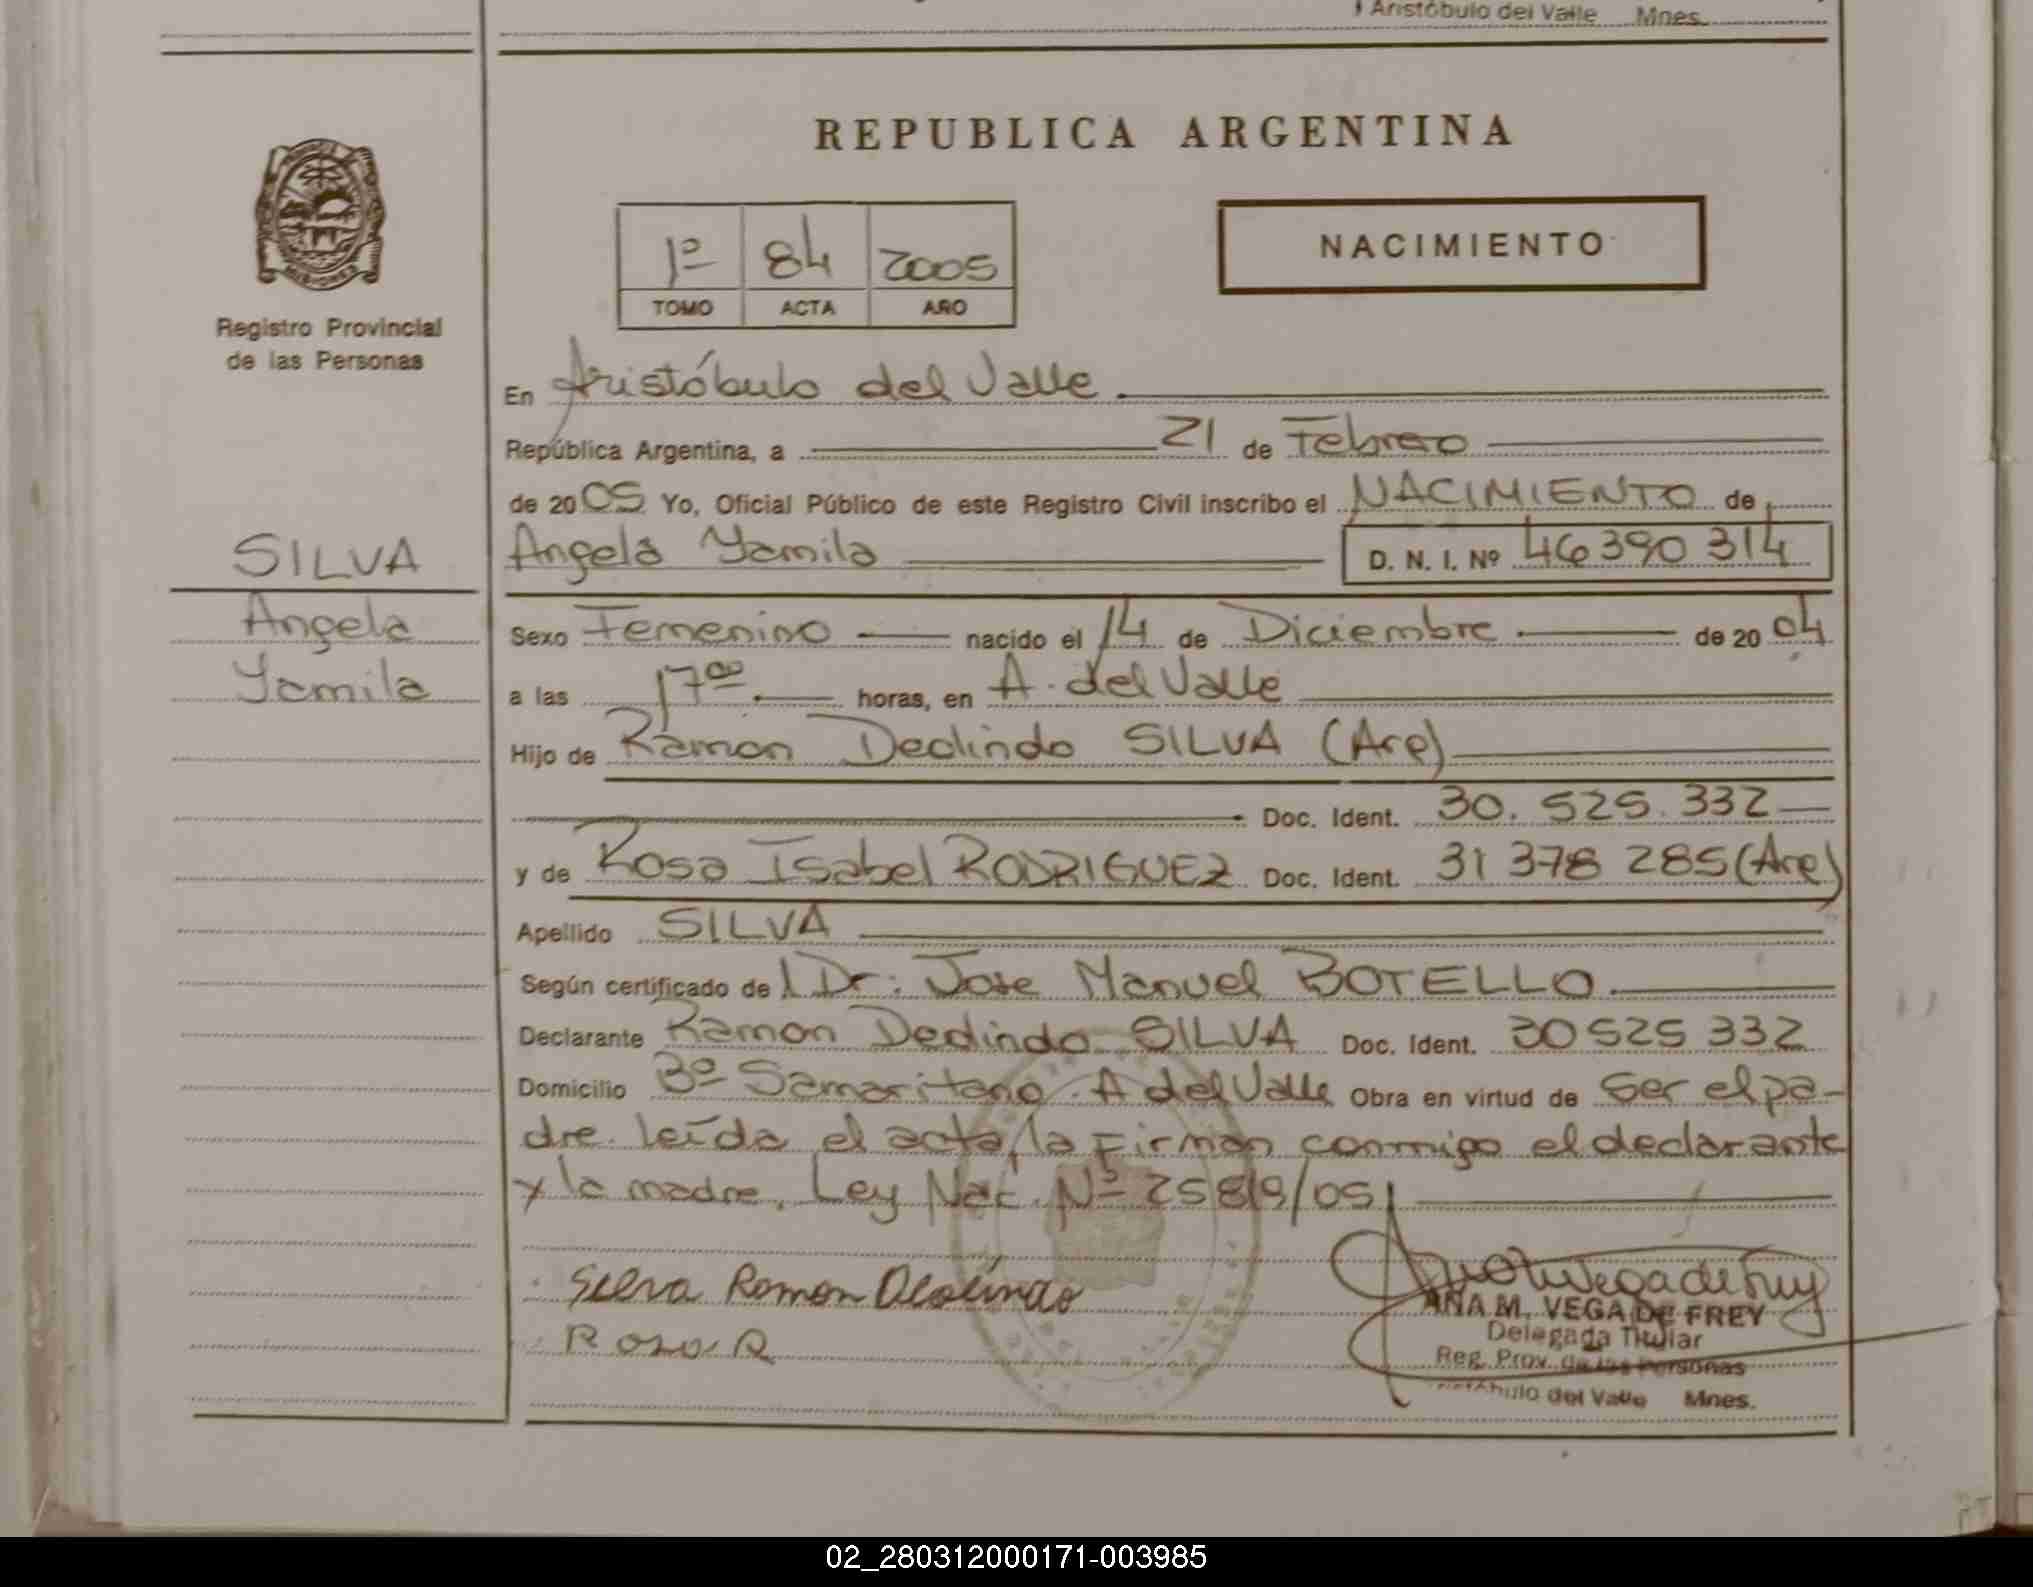 Aristóbulo del Valle Mnes.
REPUBLICA ARGENTINA
NACIMIENTO
1º 84 2005
TOMO ACTA AÑO
Registro Provincial
de las Personas
En Aristóbulo del Valle
República Argentina, a 21 de Febrero
de 2005 Yo, Oficial Público de este Registro Civil inscribo el NACIMIENTO de
SILVA
Angela Yamila D. N. I. Nº 46390314
Angela
Yamila
Sexo Femenino nacido el 14 de Diciembre de 2004
a las 17ºº horas, en A. del Valle
Hijo de Ramon Deolindo SILVA (Arg)
Doc. Ident. 30.525.332
y de Rosa Isabel RODRIGUEZ Doc. Ident. 31 378 285 (Arg)
Apellido SILVA
Según certificado de l Dr: Jose Manuel BOTELLO
Declarante Ramon Deolindo SILVA Doc. Ident. 30 525 332
Domicilio Bº Samaritano. A del Valle Obra en virtud de Ser el pa-
dre. leída el acta, la Firman conmigo el declarante
y la madre, Ley Nac. Nº 25819/05
Silva Ramon Deolindo
Rosa R
ANA M. VEGA DE FREY
Delegada Titular
Reg. Prov. de las Personas
Aristóbulo del Valle Mnes.
02_280312000171-003985